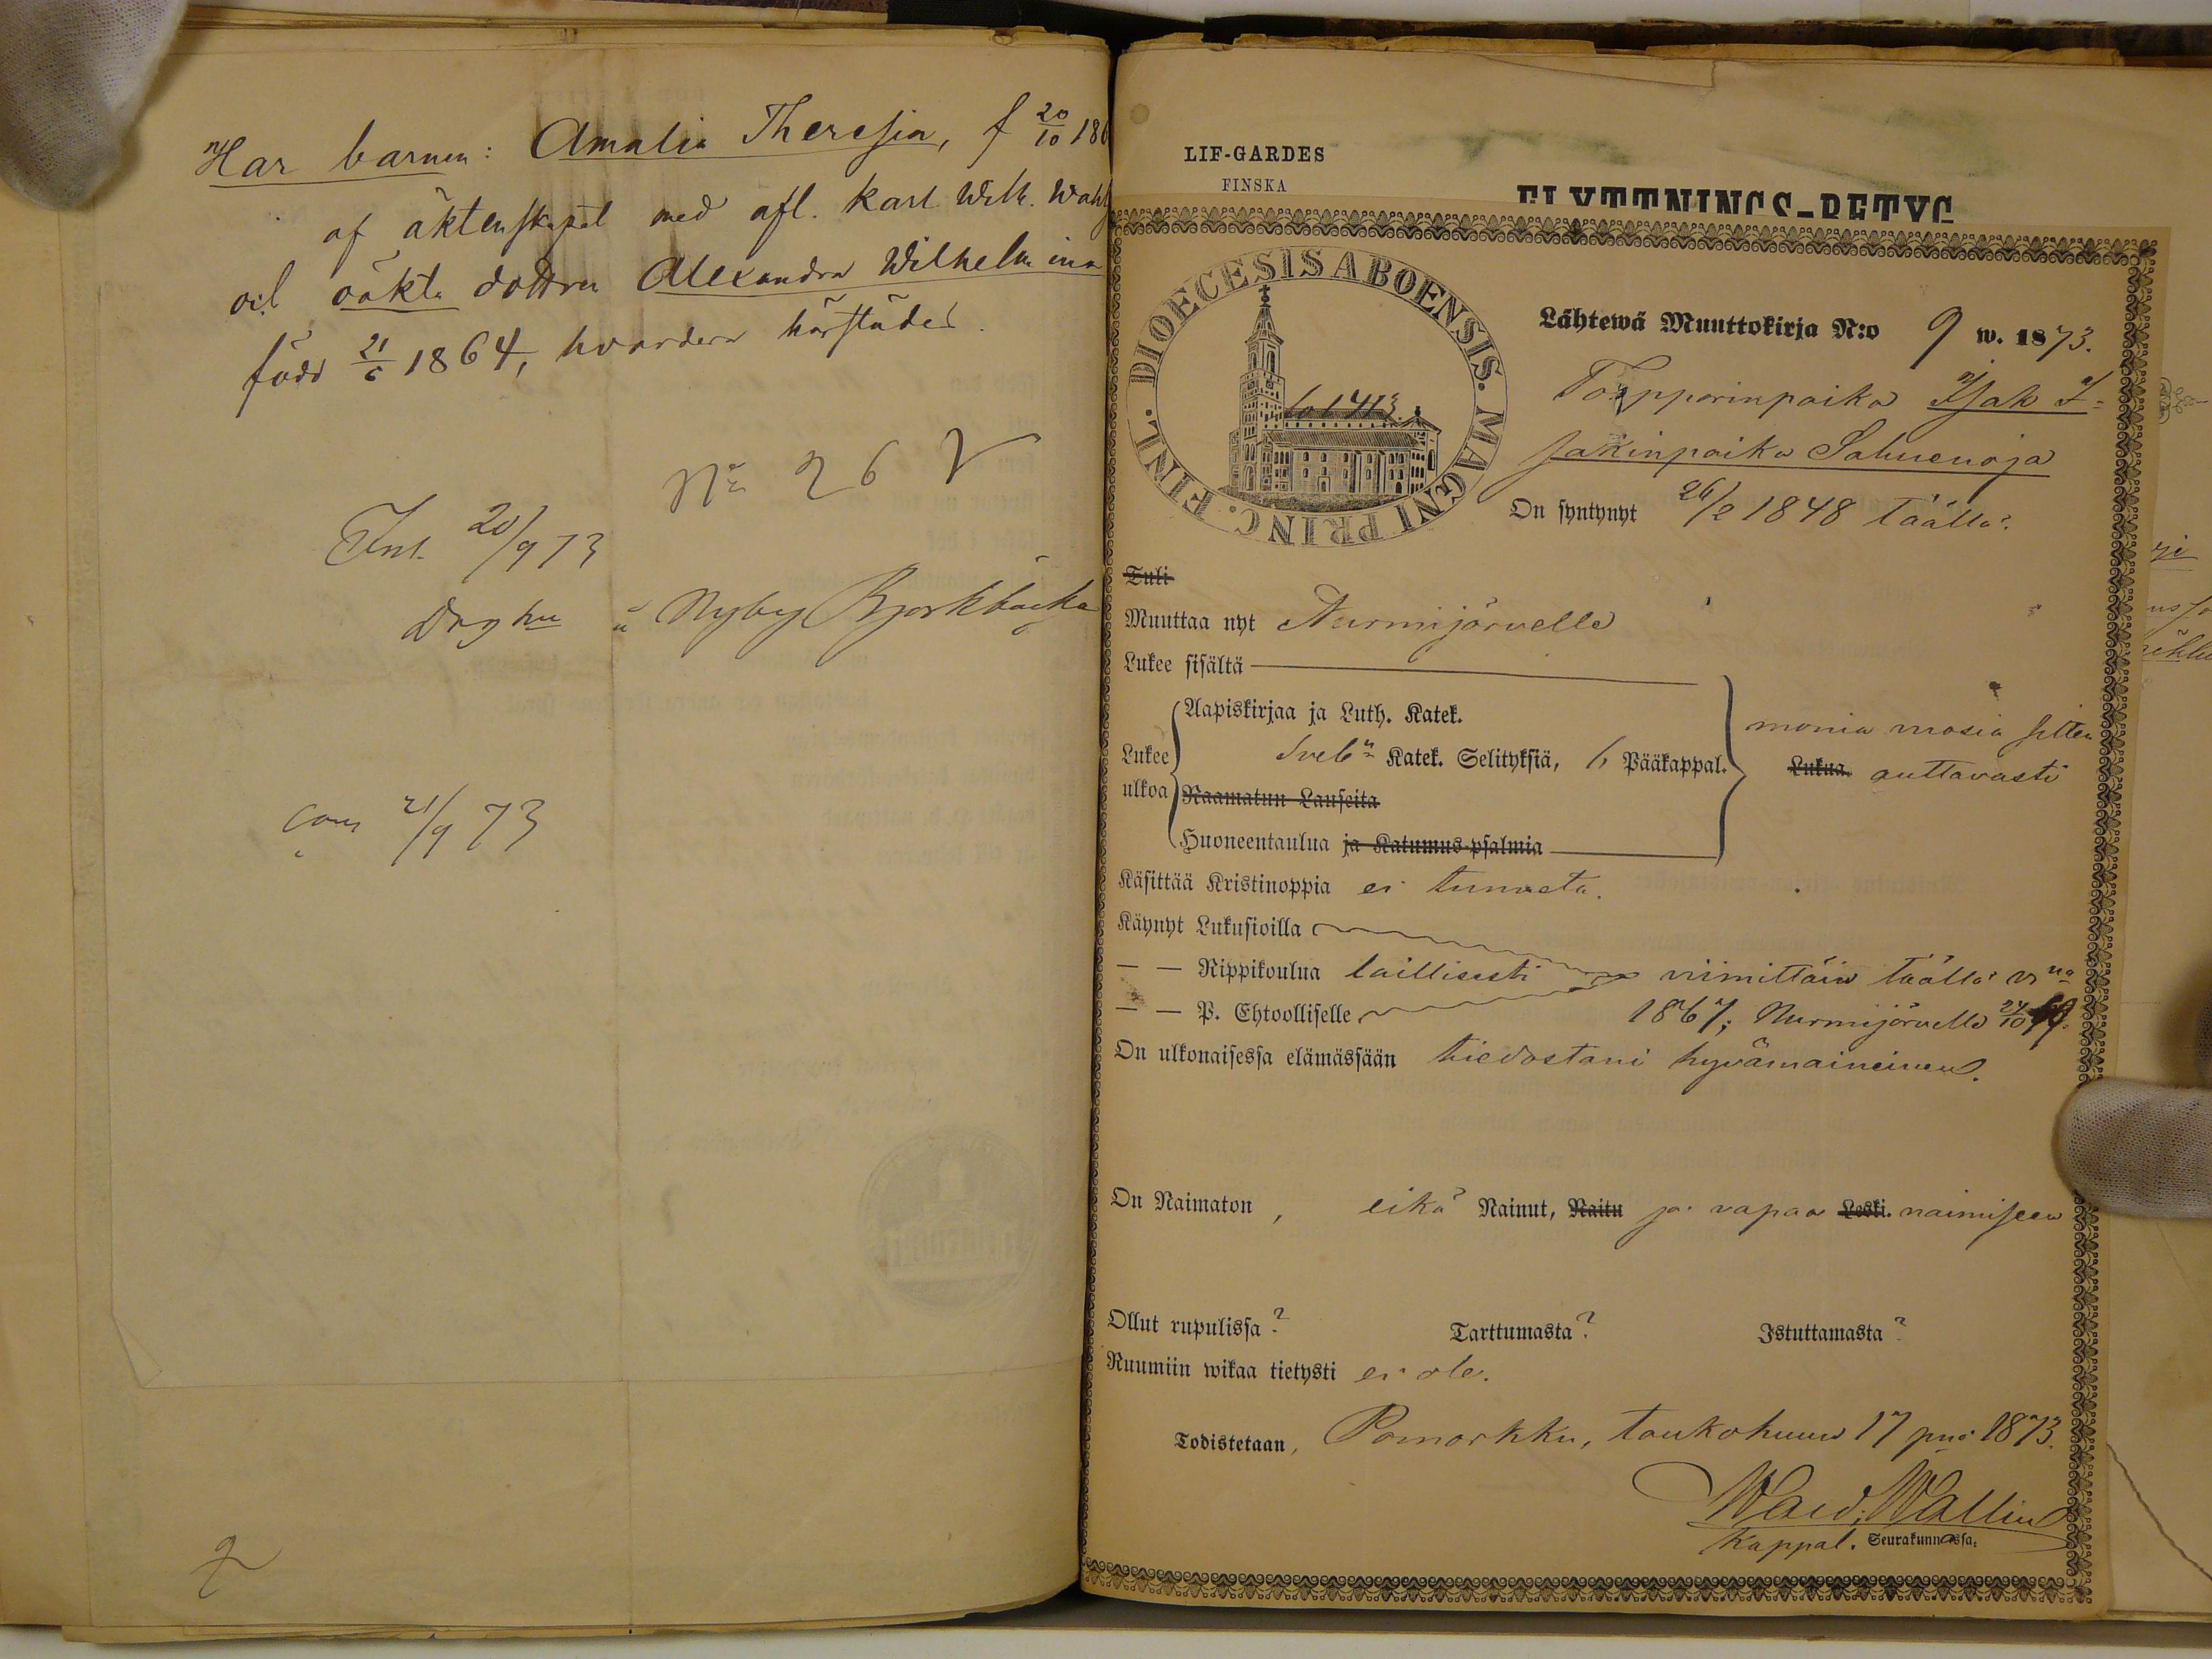 Har barnen: Amalia Theresia, f 20/10 186
af äktenskapet med afl. Karl Wilh. Wahl
och oäkta dottren Alexandra Wilhelmina
född 21/6 1864, hvardera härstädes.
No 26
Inl. 20/9 73
Nyby Bjorkbacka
21/9 73
LIF-GARDES
FINSKA
FLYTTNINGS-BETYG
DIOECESIS ABOENSIS. MAGNI PRINC. FINL.
Lähtewä Muuttokirja N:o 9 w. 1873.
Torpparinpoika Isak I-
sakinpoika Salmenoja
On syntynyt 26/2 1848 täällä.
Tuli
Muuttaa nyt Nurmijärvelle
Lukee sisältä
Aapiskirjaa ja Luth. Katek.
Lukee ulkoa Sveb:n Katek. Selityksiä, 6 Pääkappal. monia vuosia sitten
Raamatun Lauseita Lukua. auttavasti
Huoneentaulua ja Katumus-psalmia
Käsittää Kristinoppia ei tunneta.
Käynyt Lukusioilla
— — Rippikoulua laillisesti viimittäin täällä v:na
— — P. Ehtoolliselle 1867; Nurmijärvellä 24/10
On ulkonaisessa elämässään tiedostani hyvämaineinen.
On Naimaton, eikä Nainut, Naitu ja vapaa Leski. naimiseen
Ollut rupulissa? Tarttumasta? Istuttamasta?
Ruumiin wikaa tietysti ei ole.
Todistetaan, Pomarkku, toukokuun 17 pnä 1873.
Wald. Wallin
Kappal. Seurakunnassa.